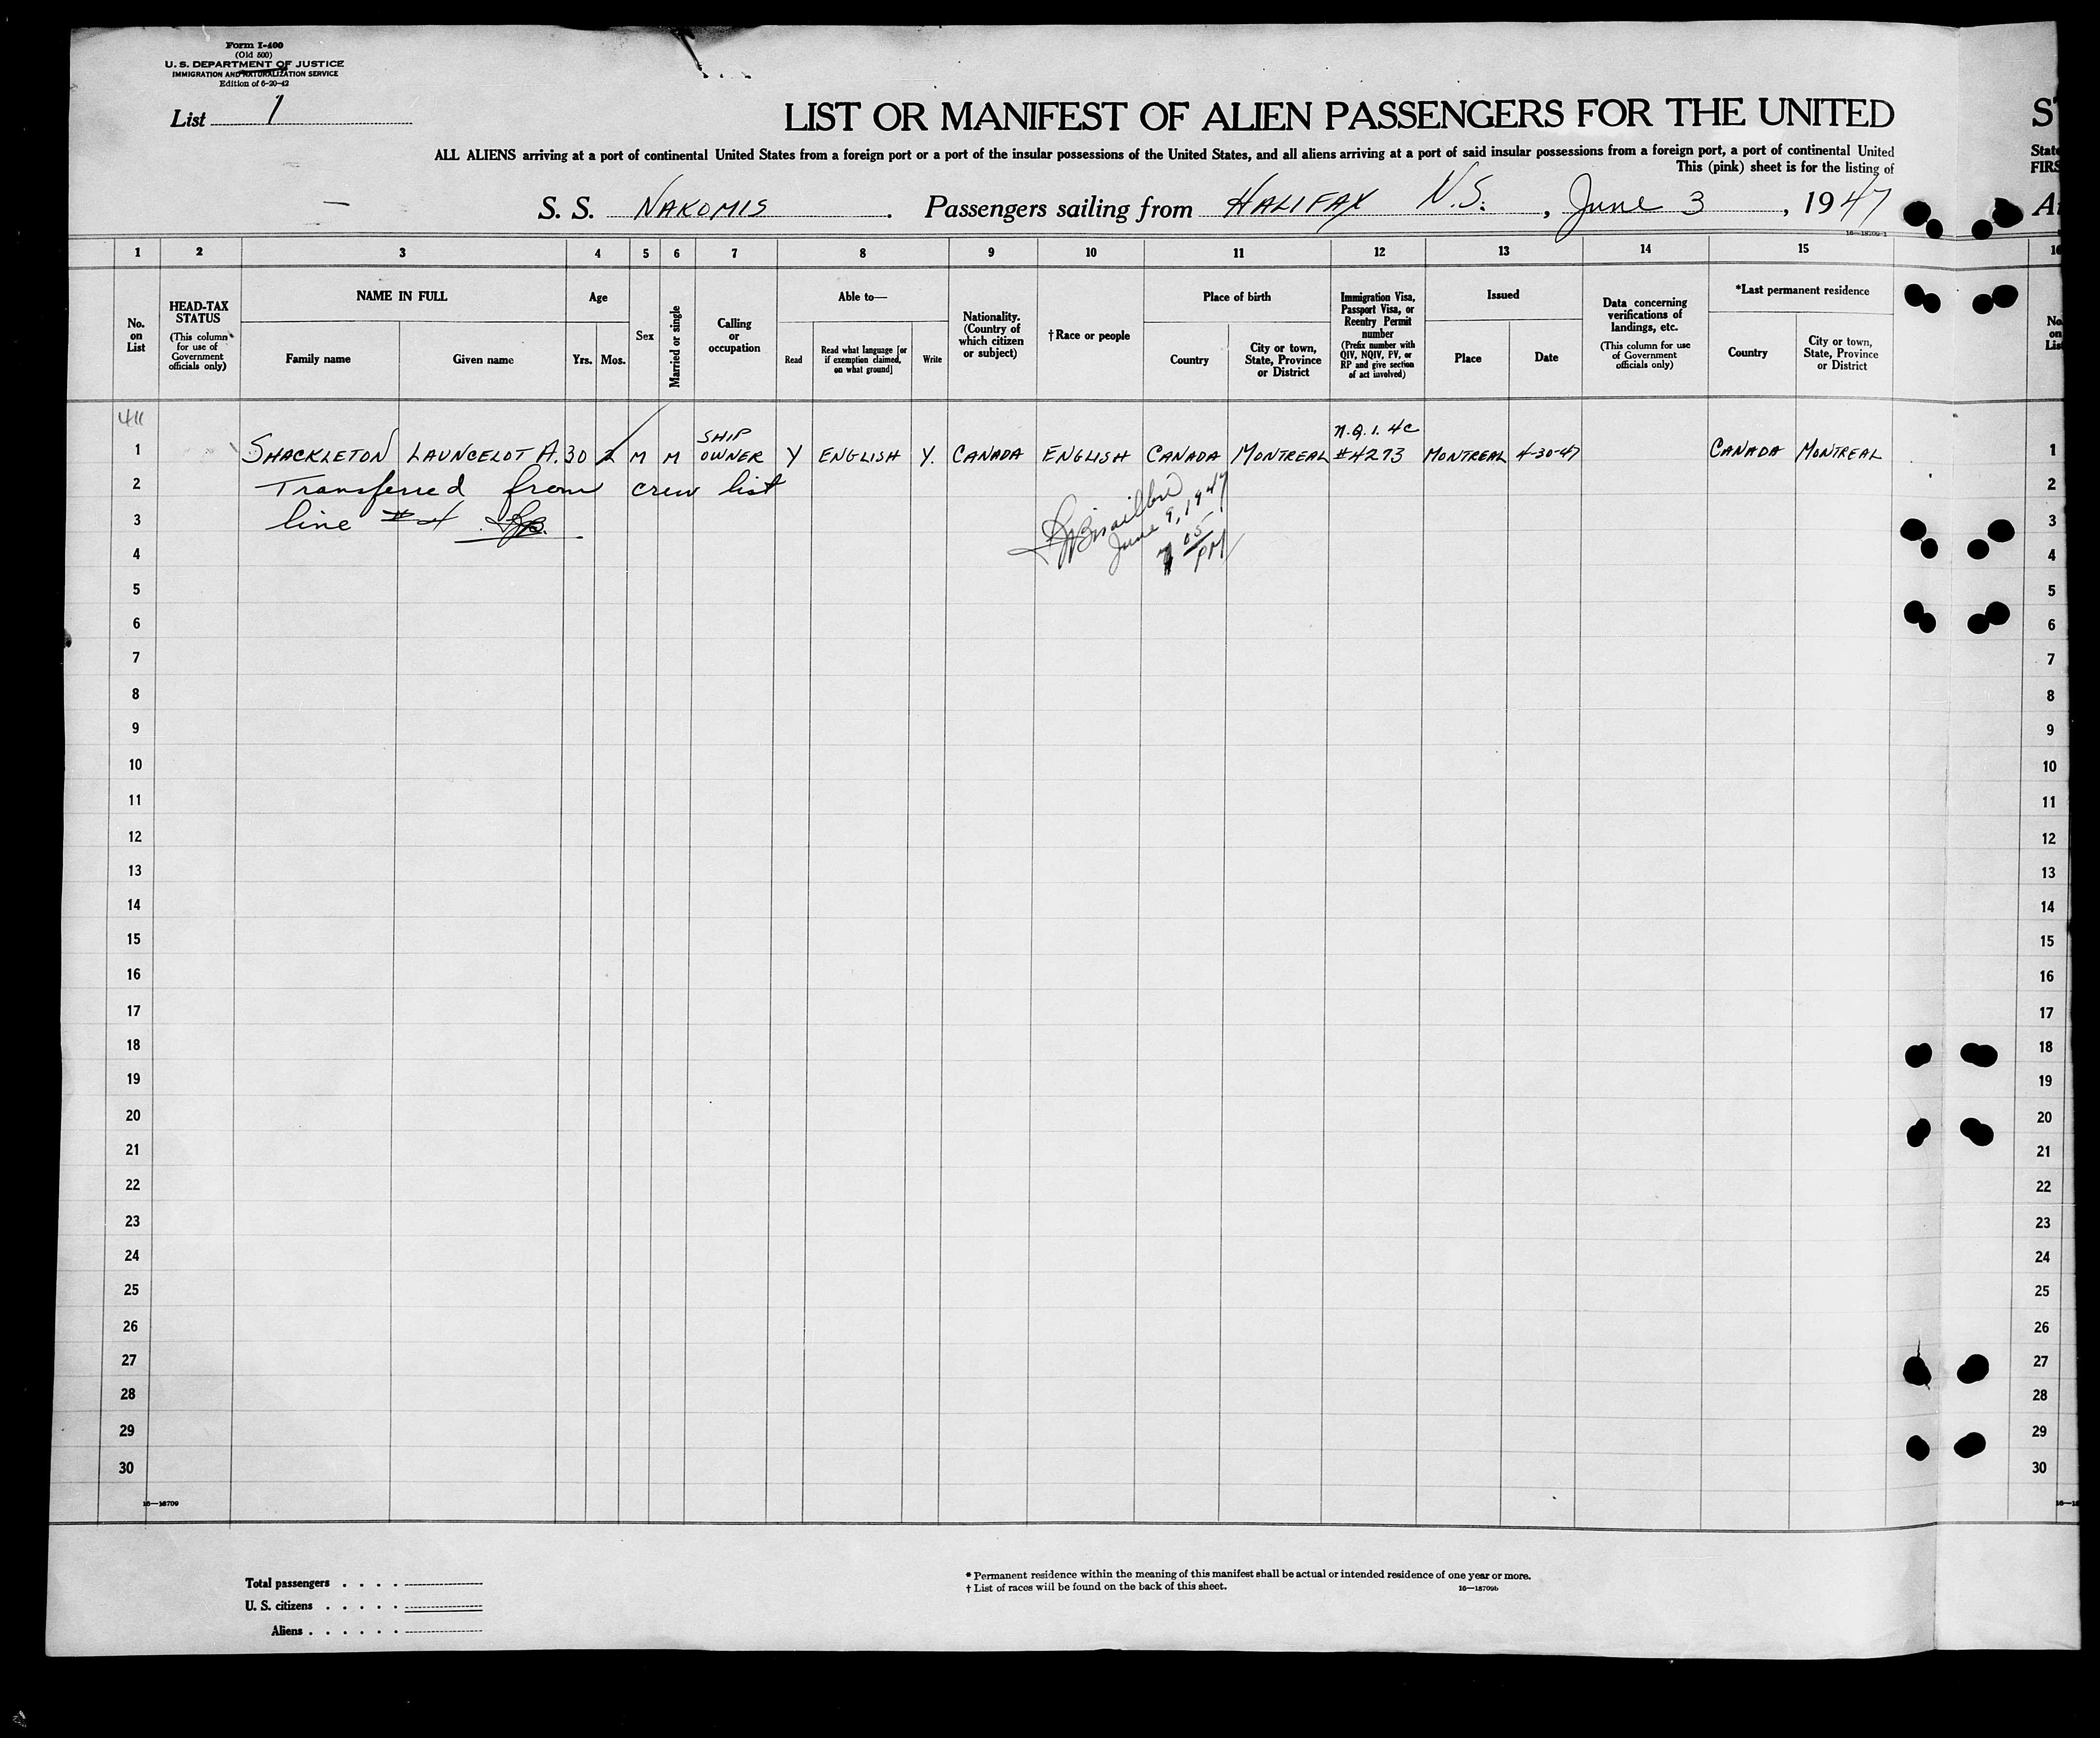 Form I-400
(Old 500)
U. S. DEPARTMENT OF JUSTICE
IMMIGRATION AND NATURALIZATION SERVICE
Edition of 6-20-42
List 1
LIST OR MANIFEST OF ALIEN PASSENGERS FOR THE UNITED
ALL ALIENS arriving at a port of continental United States from a foreign port or a port of the insular possessions of the United States, and all aliens arriving at a port of said insular possessions from a foreign port, a port of continental United
State
This (pink) sheet is for the listing of
FIRS
S. S. NAKOMIS . Passengers sailing from HALIFAX N.S. , June 3 , 1947
16—18709-1
1 2 3 4 5 6 7 8 9 10 11 12 13 14 15
No. on List
HEAD-TAX STATUS
(This column for use of Government officials only)
NAME IN FULL
Family name
Given name
Age
Yrs.
Mos.
Sex
Married or single
Calling or occupation
Able to—
Read
Read what language [or if exemption claimed, on what ground]
Write
Nationality. (Country of which citizen or subject)
†Race or people
Place of birth
Country
City or town, State, Province or District
Immigration Visa, Passport Visa, or Reentry Permit number
(Prefix number with QIV, NQIV, PV, or RP and give section of act involved)
Issued
Place
Date
Data concerning verifications of landings, etc.
(This column for use of Government officials only)
*Last permanent residence
Country
City or town, State, Province or District
411
1 SHACKLETON LAUNCELOT A. 30 M M SHIP OWNER Y ENGLISH Y. CANADA ENGLISH CANADA MONTREAL N.Q.I. 4C #4273 MONTREAL 4-30-47 CANADA MONTREAL 1
2 Transferred from crew list 2
3 line #4 3
June 9, 1947
05 PM
4 4
5 5
6 6
7 7
8 8
9 9
10 10
11 11
12 12
13 13
14 14
15 15
16 16
17 17
18 18
19 19
20 20
21 21
22 22
23 23
24 24
25 25
26 26
27 27
28 28
29 29
30 30
16—18709
Total passengers . . . .
U. S. citizens . . . . .
Aliens . . . . . .
* Permanent residence within the meaning of this manifest shall be actual or intended residence of one year or more.
† List of races will be found on the back of this sheet.
16—18709b